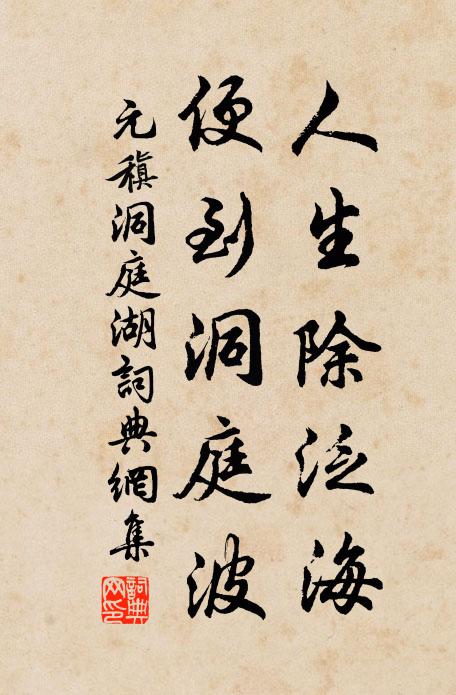 人生除泛海
便到洞庭波
元稹洞庭湖詞典網集
詞典網印